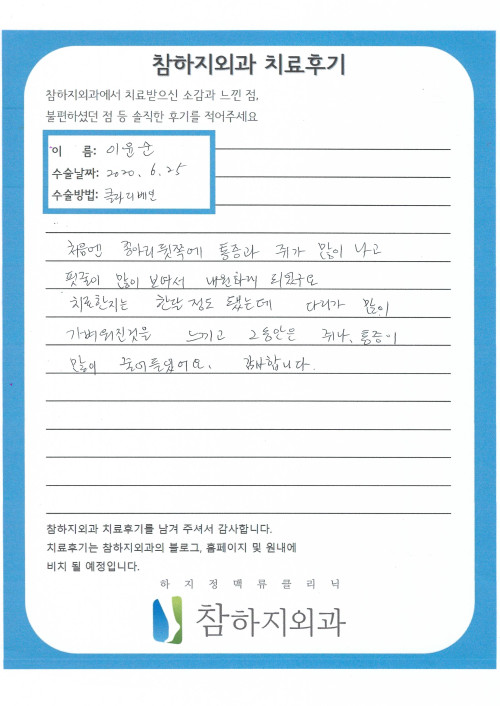 참하지외과 치료후기
참하지외과에서 치료받으신 소감과 느낀 점,
불편하셨던 점 등 솔직한 후기를 적어주세요
이 름: 이윤순
수술날짜: 2020. 6. 25
수술방법: 클라리베인
처음엔 종아리 뒷쪽에 통증과 쥐가 많이 나고
핏줄이 많이 보여서 내원하게 되었구요
치료한지는 한달 정도 됐는데 다리가 많이
가벼워진것을 느끼고 그동안은 쥐나, 통증이
많이 줄어들었어요. 감사합니다.
참하지외과 치료후기를 남겨 주셔서 감사합니다.
치료후기는 참하지외과의 블로그, 홈페이지 및 원내에
비치 될 예정입니다.
하지정맥류클리닉
참하지외과